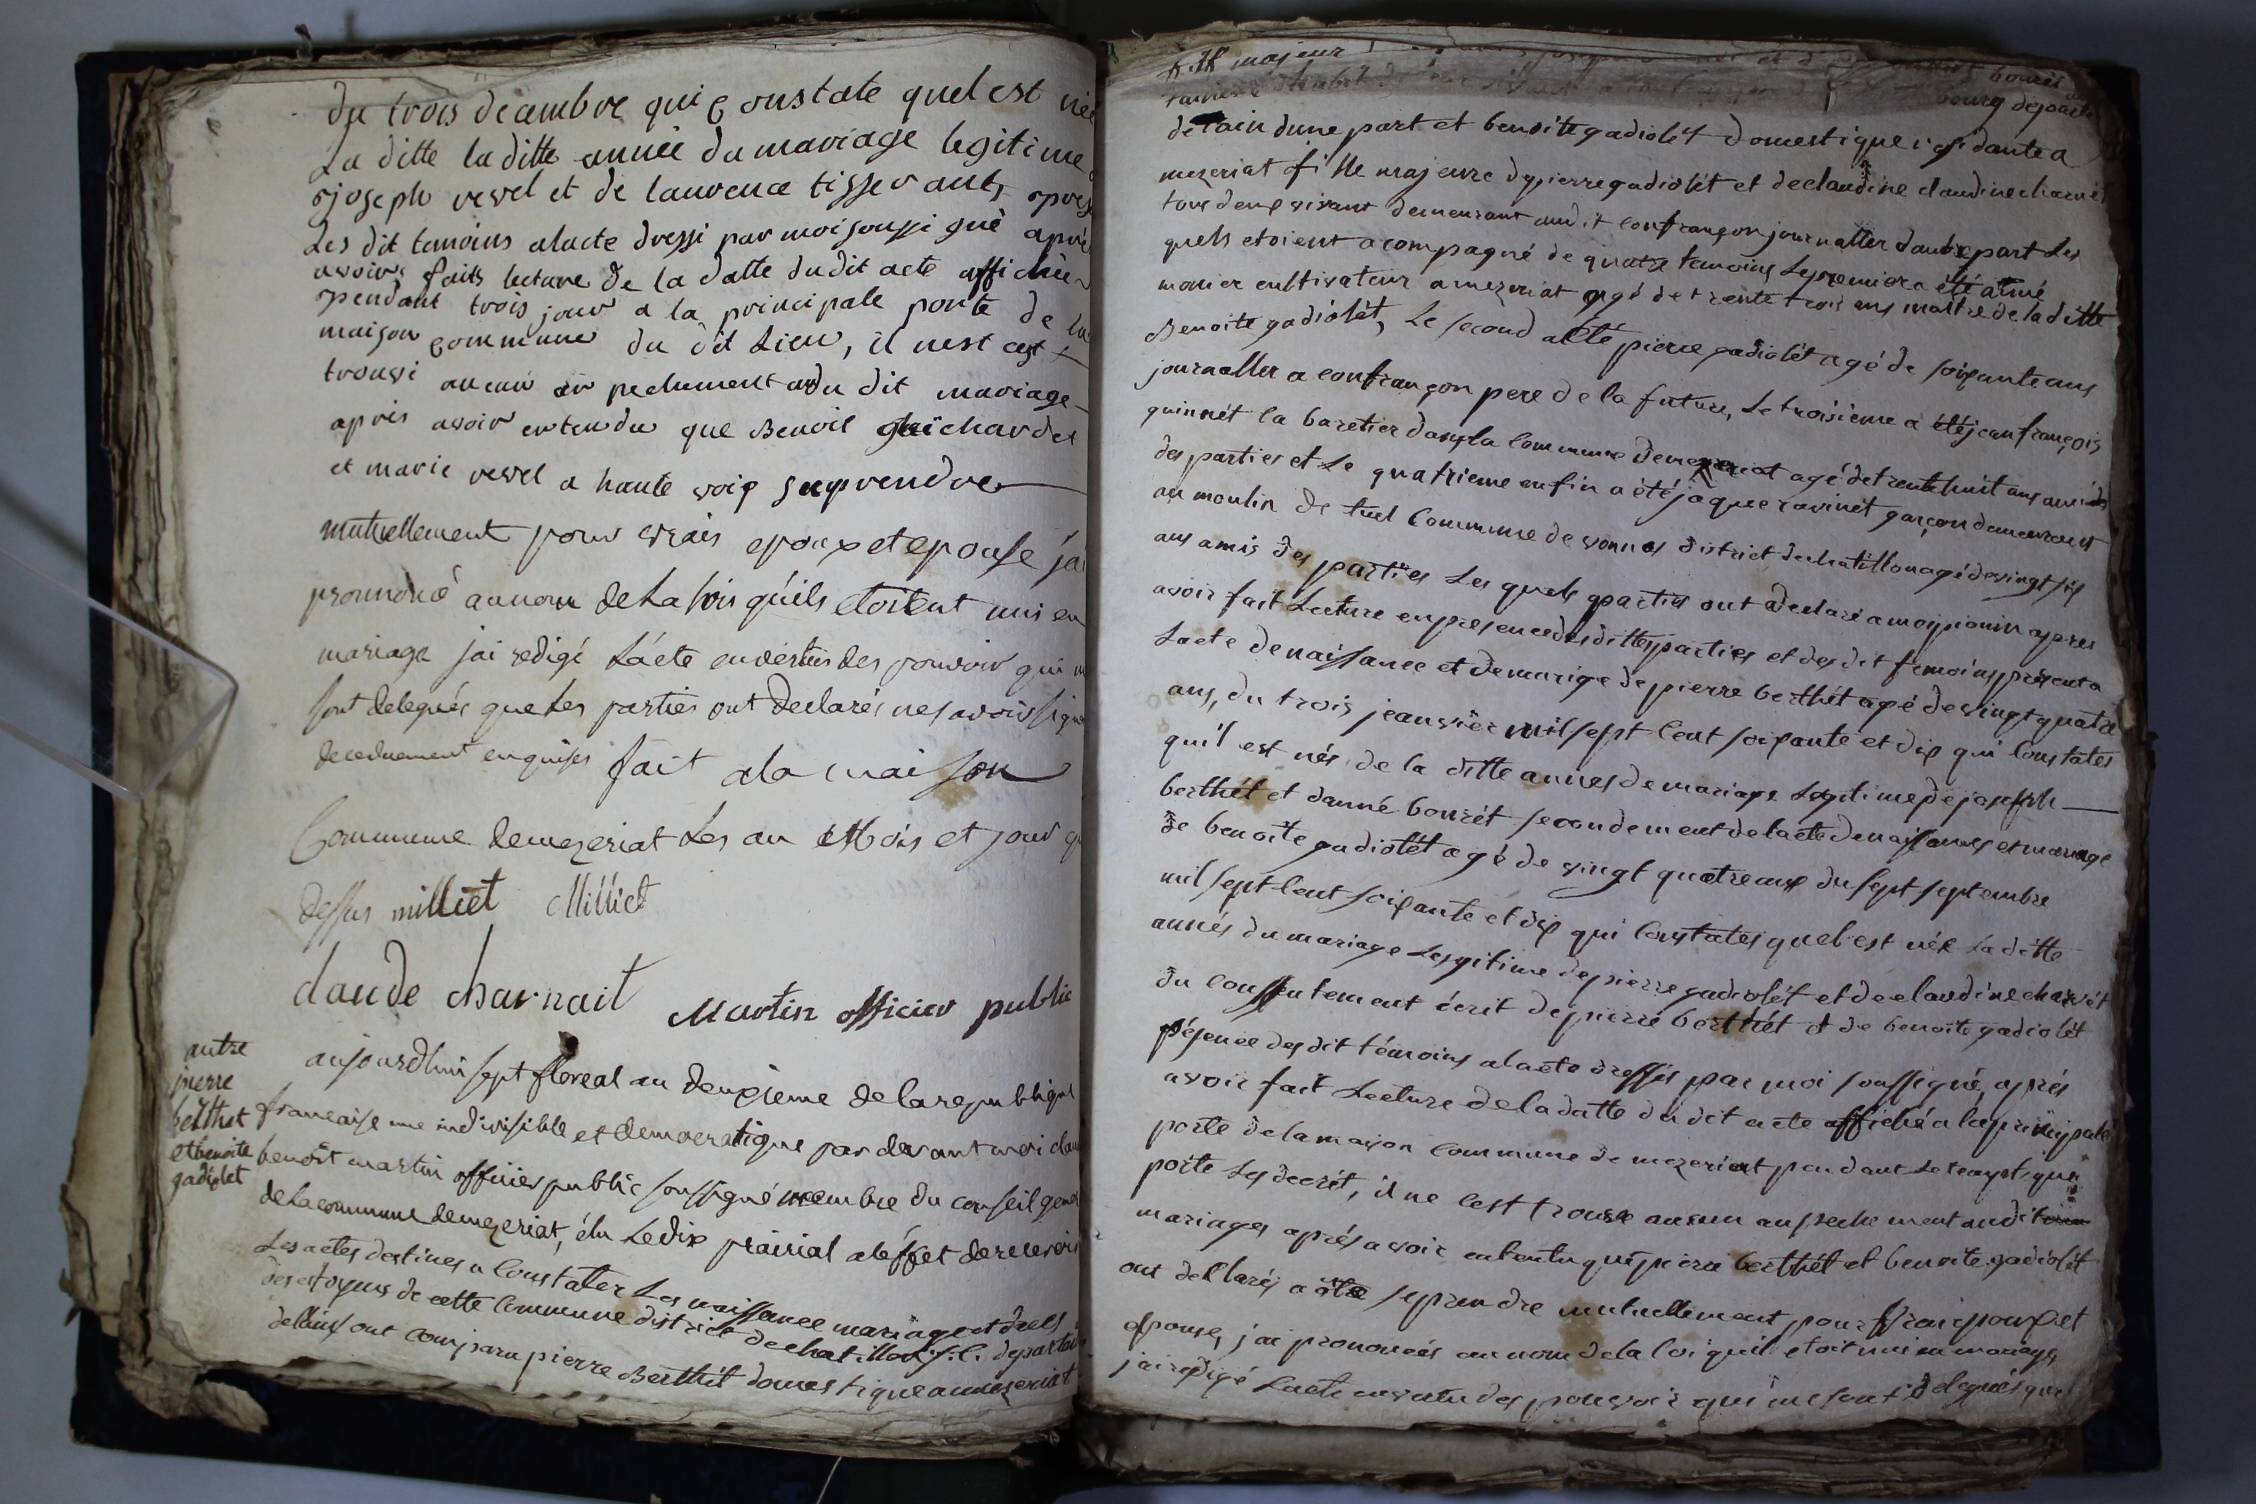 du trois decambre qui constate quel est née
La ditte la ditte année du mariage legitime
joseph revel et de laurence tisserant, apres
Les dit temoins alacte dressé par moi soussigné apré
avoir faits lecture de la datte dudit acte affichée
pendant trois jour a la principale porte de la
maison commune du dit Lieu, il nest cest
trouvé aucun en pechement au du dit mariage
après avoir entendu que Benoit guichardet
et marie revel a haute voix se prendre
mutuellement pour vrais epoux et epouse j'ai
prononcé aunom de La lois quils etoitent unis en
mariage jai redigé Lácte envertus des pouvoir qui m
sont delegués que Les parties ont declarés ne savoir signe
decedement enquises fait ala maison
Commune demezeriat Les an Mois et jour q
dessus milliet Milliet
claude charnait Martin officier public
autre
pierre
berthet
et benoite
gadiolet
aujourdhui sept floreal an deuxieme de la republique
francaise une indivisible et democratique par devant moi clau
benoit martin officier public soussigné membre du conseil gene
de La commune demezeriat, élu Le dix prairial aléffet de recevoir
Les actes destines a Constater Les naissance mariage et deces
des citoyens de cette Commune district de chatillon s. c. depart
dellain ont comparu pierre Berthét domestique a mezeriat
fils majeur
bourg depart
delain dune part et benoite gadiolét domestique residante a
mezeriat fille majeure de pierre gadiolét et de claudine claudine charvét
tous deux vivant demeurant audit confrançon journallier dautre part Les
quels etoient acompagné de quatre temoins Le premier a été aimé
monier cultivateur a mezeriat agé de trente trois ans maitre de la ditte
Benoite gadiolét, Le second a été pierre gadiolét agé de soixante ans
journallier a confrançon pere de la future, Le troisieme a été jean françois
guinnét la baretier dans la Commune demezeriat agé de trente huit ans ami
des parties et Le quatrieme enfin a été jaque ravinet garçon demeurant
au moulin de tuel Commune de vonnas district de chatillon agé de vingt six
ans amis des parties Les quels parties ont declaré a moy pionin apres
avoir fait Lecture en presence des dittes parties et des dit temoins présenta
Lacte de naissance et de marige de pierre berthét agé de vingt quatre
ans, du trois jeanvier mil sept Cent soixante et dix qui Constates
quil est nés de la ditte annes de mariage Legitime de joseph
berthét et danné bourét secondement de lacte de naissances et mariage
de benoite gadiolét agé de vingt quatre ans du sept septembre
mil sept Cent soixante et dix qui Constates quel est née La ditte
annés du mariage Legitime de pierre gadiolét et de claudine charvét
du consentement écrit de pierre berthét et de benoite gadiolét
présence des dit témoins alacte dressés par moi soussigné, aprés
avoir fait Lecture de la datte du dit acte affiché a la principale
porte de la maison Commune de mezeriat pendant Le temps que
porte Les decrét, il ne cest trouve aucun anpechement audit
mariages aprés avoir entendu que pierre berthét et benoite gadiolét
ont dellarés a se prendre mutuellement pour vrai epoux et
epouse, j'ai prononcés au nom de la loi quil etoit uni en mariage,
jai redigé Lacte en vertu des pouvoir qui me sont delegués que